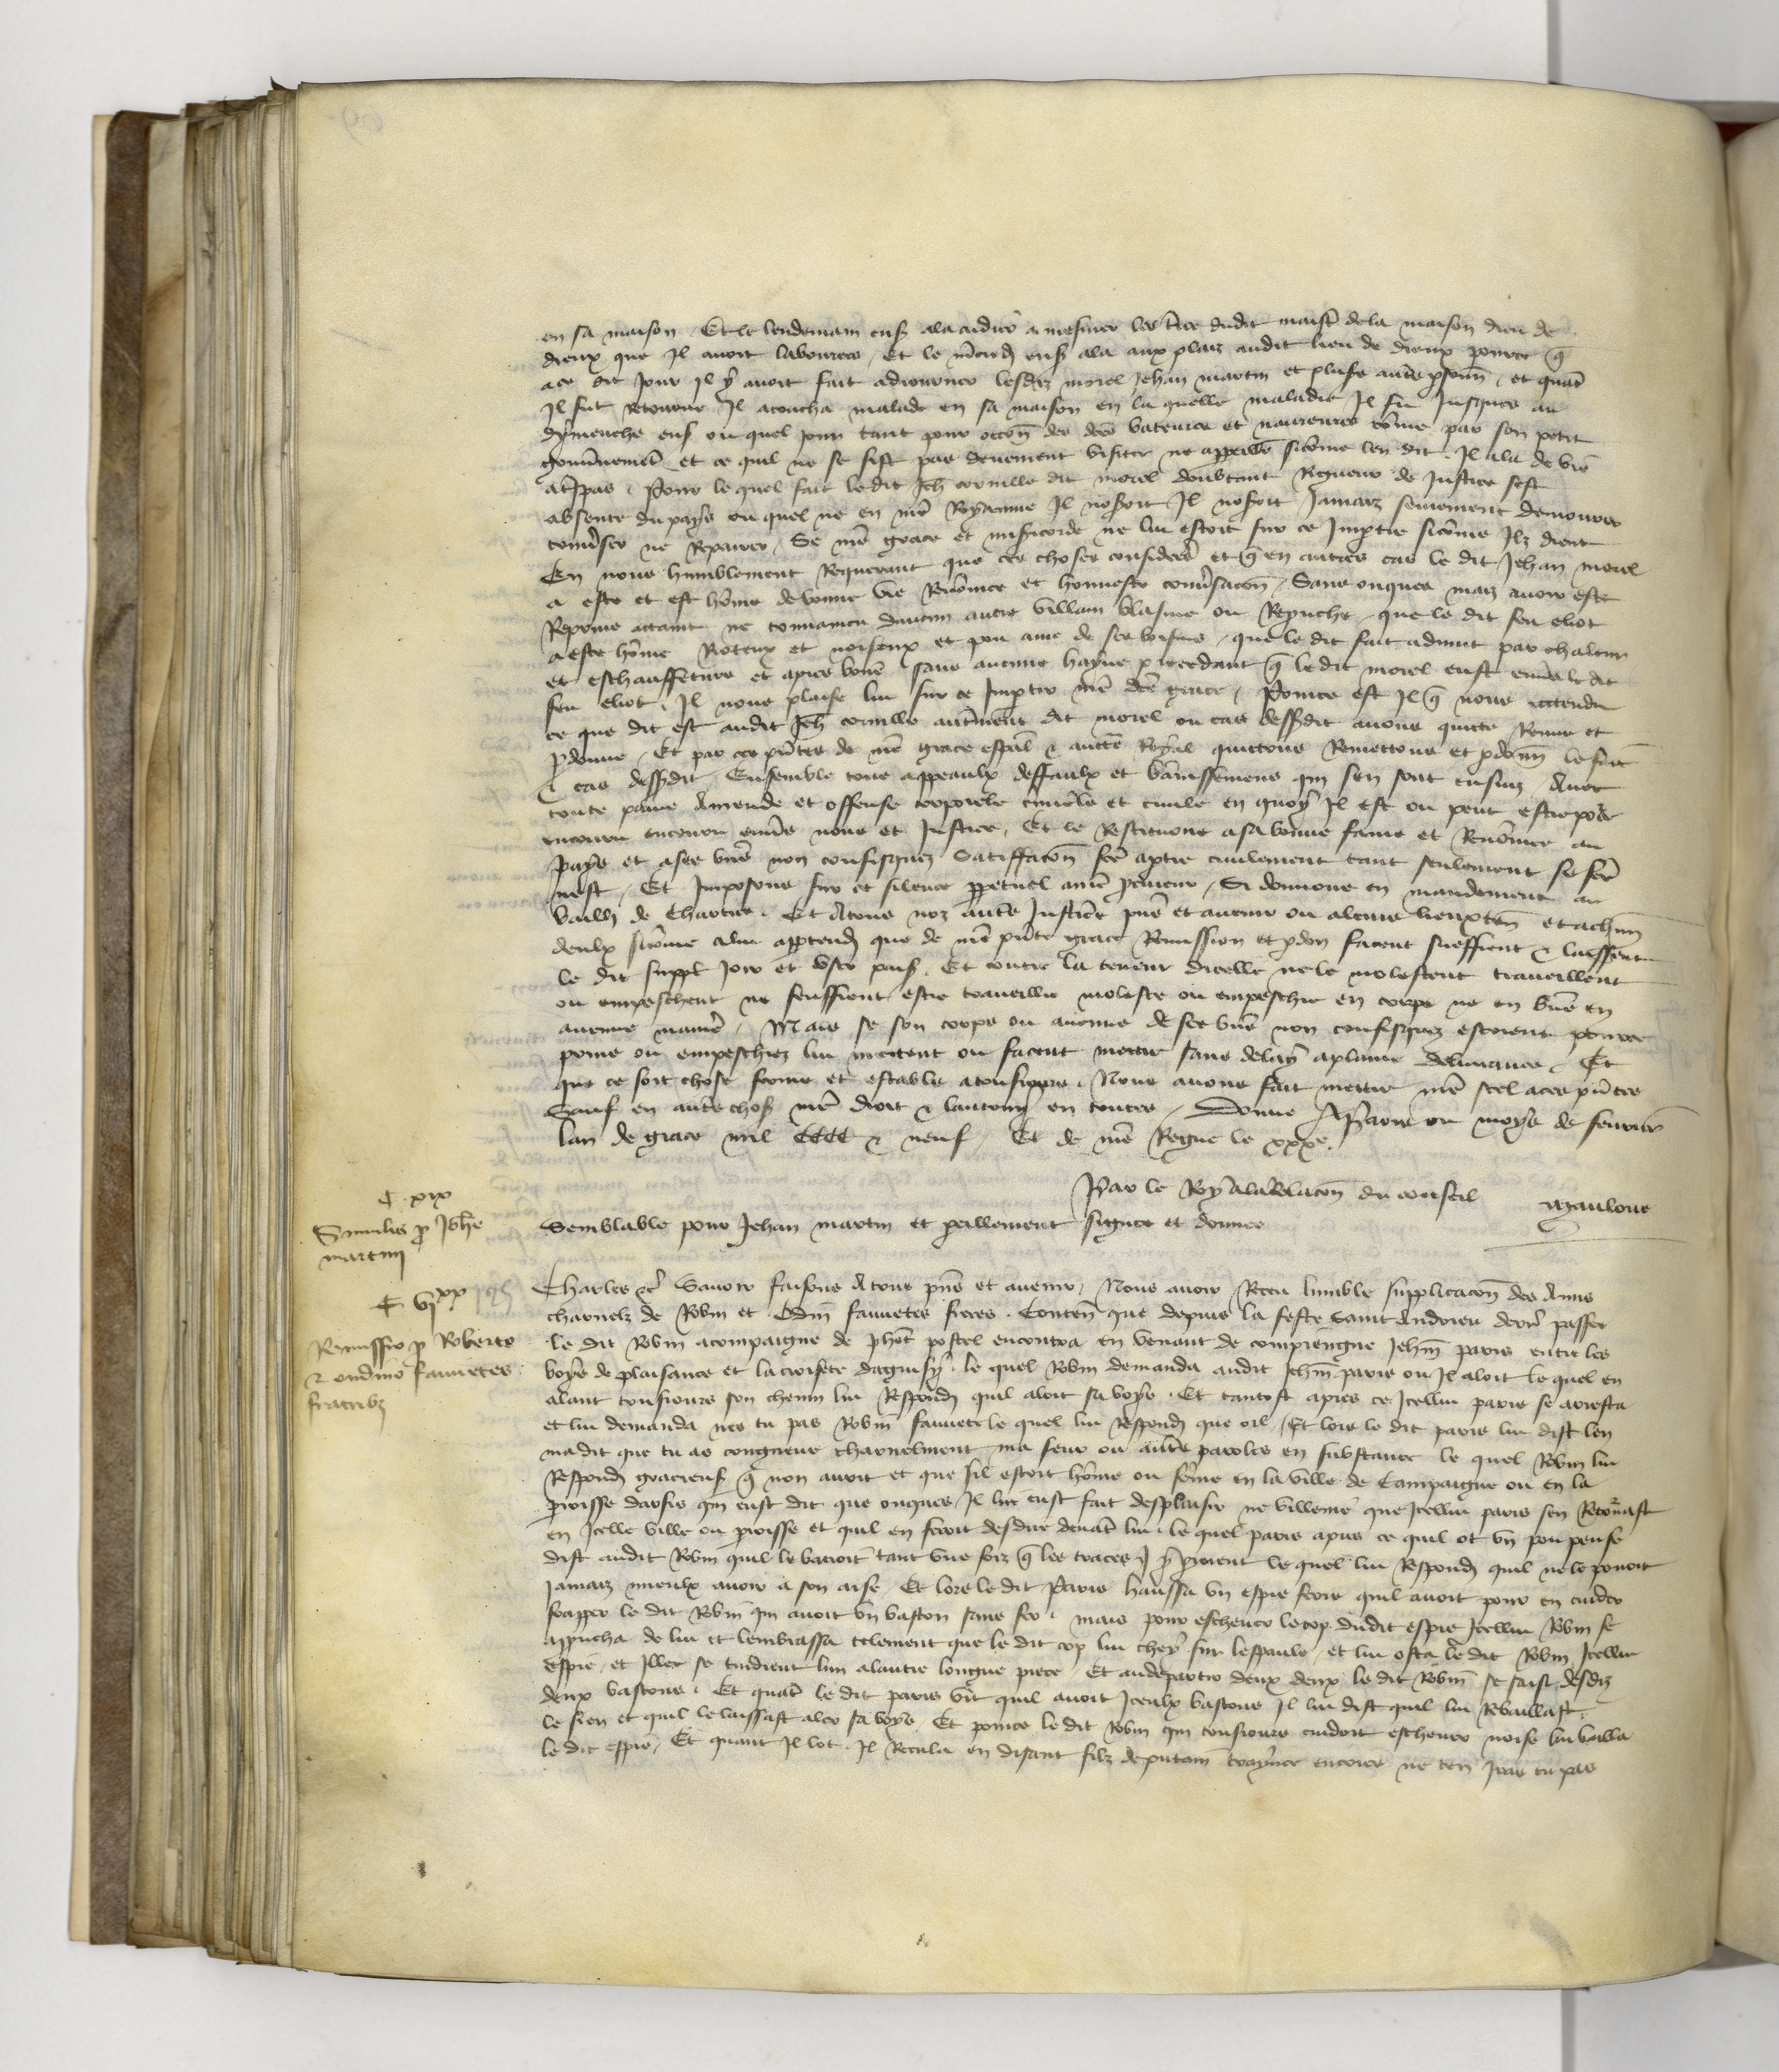 en sa maison. Et le lendemain ensˢ ala cuidier a mesurer les terres dudit maistˢ de la maison dieu de
dreux que Il avoit labourees. Et le mˢcrdi ensˢ ala aux plaiz audit lieu de dreux pource q̃
a ce dit jour Il y avoit fait adiourner lesdiz morel Jehan martin et plusˢ autˢs pˢsonñ. et quãt
Il fut Retourne Il acoucha malade en sa maison en la quelle maladie Il fu Jusques au
dymenche ensˢ ou quel jour tant pour occoñ des dˢes bateures et navreures cõme par son petit
gouvˢnemẽt et ce quil ne se fist pas deuement visiter ne appareillˢ sicõme len dit. Il ala de vie
a tˢspas. Pour le quel fait ledit Jeħ cornille dit morel doubtant Rigueur de Justice sest
absente du pays ou quel ne en nrẽ Royaume Il nosoit Il nosoit Jamaiz seurement demourer
convˢser ne Repairer. Se nrẽ grace et misˢicorde ne lui estoit sur ce Impˢtie sicõme Ilz dient
En nous humblement Requerant que ces choses considerˢ et q̃ en autres cas le dit Jehan morel
a este et est hõme de bonne vie Renõmee et honneste convˢsacoñ. Sans onques maiz avoir este
Reprins attaint ne convaincu daucun autre villain blasme ou Reprˢuche. que le dit feu eliot
a este hõme Rioteux et noiseux et pou ame de ses voisins. que le dit fait advint par chaleur
et eschauffeture et apres boire sans aucune hayne precedant q̃ le dit morel eust envˢs le dit
feu eliot. Il nous plaise lui sur ce Impˢtir nrẽ dˢe grace. Pource est Il q̃ nous attendu
ce que dit est audit Jeħ cornille autˢment dit morel ou cas dessˢdit avons quitte Remis et
pˢdonne. Et par ces pñtes de nrẽ grace espal & auctˢe Royal quittons Remettons et pˢdonñ le fait
& cas dessˢdit. Ensemble tous appeaulx deffaulx et bãnissemens qui sen sont ensuiz Avec
toute paine Amende et offense corporele criminˢle et civile en quoy Il est ou peut estre pour ce
encouru encouru envˢs nous et Justice. Et le Restituons a sa bonne fame et Renõmee au
pays et a ses biẽs non confisquez Satiffacoñ fcẽ a partie civilement tant seulement se fcẽ
nest. Et Imposons sur ce silence perpetuel a nrẽ procureur. Si donnons en mandement au
bailli de Chartres. Et A tous noz autˢs Justicˢs pñs et avenir ou a leurs lieuxteñ et a chũn
deulx sicõme a lui appartendˢ que de nrẽ pñte grace Remission et pdon facent sueffrent & laissent
le dit supplˢ joir et user paisˢ. Et contre la teneur dicelle ne le molestent travaillent
ou empeschent ne seuffrent estre travaillie moleste ou empeschie en corps ne en biẽs en
aucune maniẽ. Mais se son corps ou aucuns de ses biẽs non confisquez estoient pour ce
prins ou empeschiez lui mettent ou facent mettre sans delay a plaine delivrance. Et
que ce soit chose ferme et estable a tousjours. Nous avons fait mettre nrẽ scel a ces pñtes
Sauf en autˢs chosˢ nrẽ droit & lautruy en toutes. Donne A Paris ou moys de fevrier
lan de grace mil CCCC & neuf. Et de nrẽ Regne le xxxᵉ.
Par le Roy a la Relacoñ du conseil
Maulone
C xix
Similis p̃ Joħe
martin
Semblable pour Jehan martin et pareillement signee et donnee
C vi xx
Remissio p̃ Roberto
& oudino fauvetes
fratribz
Charles &cˢ Savoir faisons A tous pñs et avenir. Nous avoir Receu lumble supplicacoñ des Amis
charnelz de Robin et Odin fauvetes freres. Conteñ que depuis la feste Saint Andrieu derrˢ passee
le dit Robin acompaigne de Phot postel encontra en venant de compiengne Jehañ paris entre les
voyes de plaisance et la croisete daguisy. le quel Robin demanda audit Jehañ paris ou Il aloit le quel en
alant tousiours son chemin lui Respondˢ quil aloit sa voye. Et tantost apres ce Icellui paris se aresta
et lui demanda nes tu pas Robiñ fauvete le quel lui Respondˢ que oil. Et lors le dit paris lui dist len
ma dit que tu as congneue charnelment ma seur ou autˢs paroles en substance le quel Robin lui
Respondˢ gracieusˢ q̃ non avoit et que sil estoit hõme ou fẽme en la ville de Campaigne ou en la
parroisse darsis qui eust dit que onques Il lui eust fait desplaisir ne villenie que Icellui paris sen Retournast
en Icelle ville ou parroisse et quil en feroit desdire devãt lui. le quel paris apres ce quil ot un pou pense
dist audit Robin quil le batroit tant une foiz q̃ les traces y perroient le quel lui Respondˢ quil ne le pouoit
Jamaiz mieulx avoir a son aise. Et lors le dit Paris haussa un espie ferre quil avoit pour en cuider
frapper le dit Robiñ qui avoit un baston sans fer. mais pour eschever le cop dudit espie Icellui Robin se
approucha de lui et lembrassa telement que le dit cop lui chey sur lespaule. et lui osta le dit Robin Icellui
espie. et Illec se tindrent lun a lautre longue piece. Et au departir deux deux le dit Robiñ se saisi desdiz
deux bastons. Et quãt le dit paris vit quil avoit Iceulx bastons Il lui dist quil lui Rebaillast
le sien et quil le laissast aler sa voye. Et pource le dit Robin qui tousiours cuidoit eschever noise lui bailla
le dit espie. Et quant Il lot. Il Recula en disant filz de putain traytre encores ne ten Iras tu pas